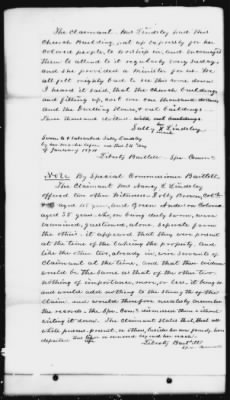 The Claimant Mrs Lindsley had this
Church Building, put up expressly for her
colored people, to worship in, and encouraged
them to attend to it regularly every Sunday,
and she provided a Minister for us. We
all felt mighty bad to see this torn down.
I heard it said that the Church building
and fitting up, cost one thousand dollars
and the burning stones, & out buildings
Two thousand dollars with out buildings.
Sally X Lindsley
Sworn to & subscribed Sally Lindsley
by her mark before me this 26 day
of January 1874
Liberty Bartlett Spe. Comr.
Note By Special Commissioner Bartlett
The Claimant Mrs Nancy L Lindsley
offered two other Witnesses - Polly Brown, Col'd
aged 45 years, and Green Anderson Colored
aged 55 years. who, on being duly sworn, were
examined, questioned, alone, separate from
the other. it appeared that they were present
at the time of the taking the property. And
like the other two, already in, were servants of
Claimant at the time, and that their evidence
would be the same as that of the other two.
nothing of importance, more, or less, it being so
and would add nothing to the strength of the
claim and would therefore needlessly encumber
the records. the Spe. Comr. dismisses them without
writing it down. The Claimant states that that all
white persons present, or others, besides her own family have
departed this life or removed beyond her reach.
Liberty Bartlett
Spe. Comr.